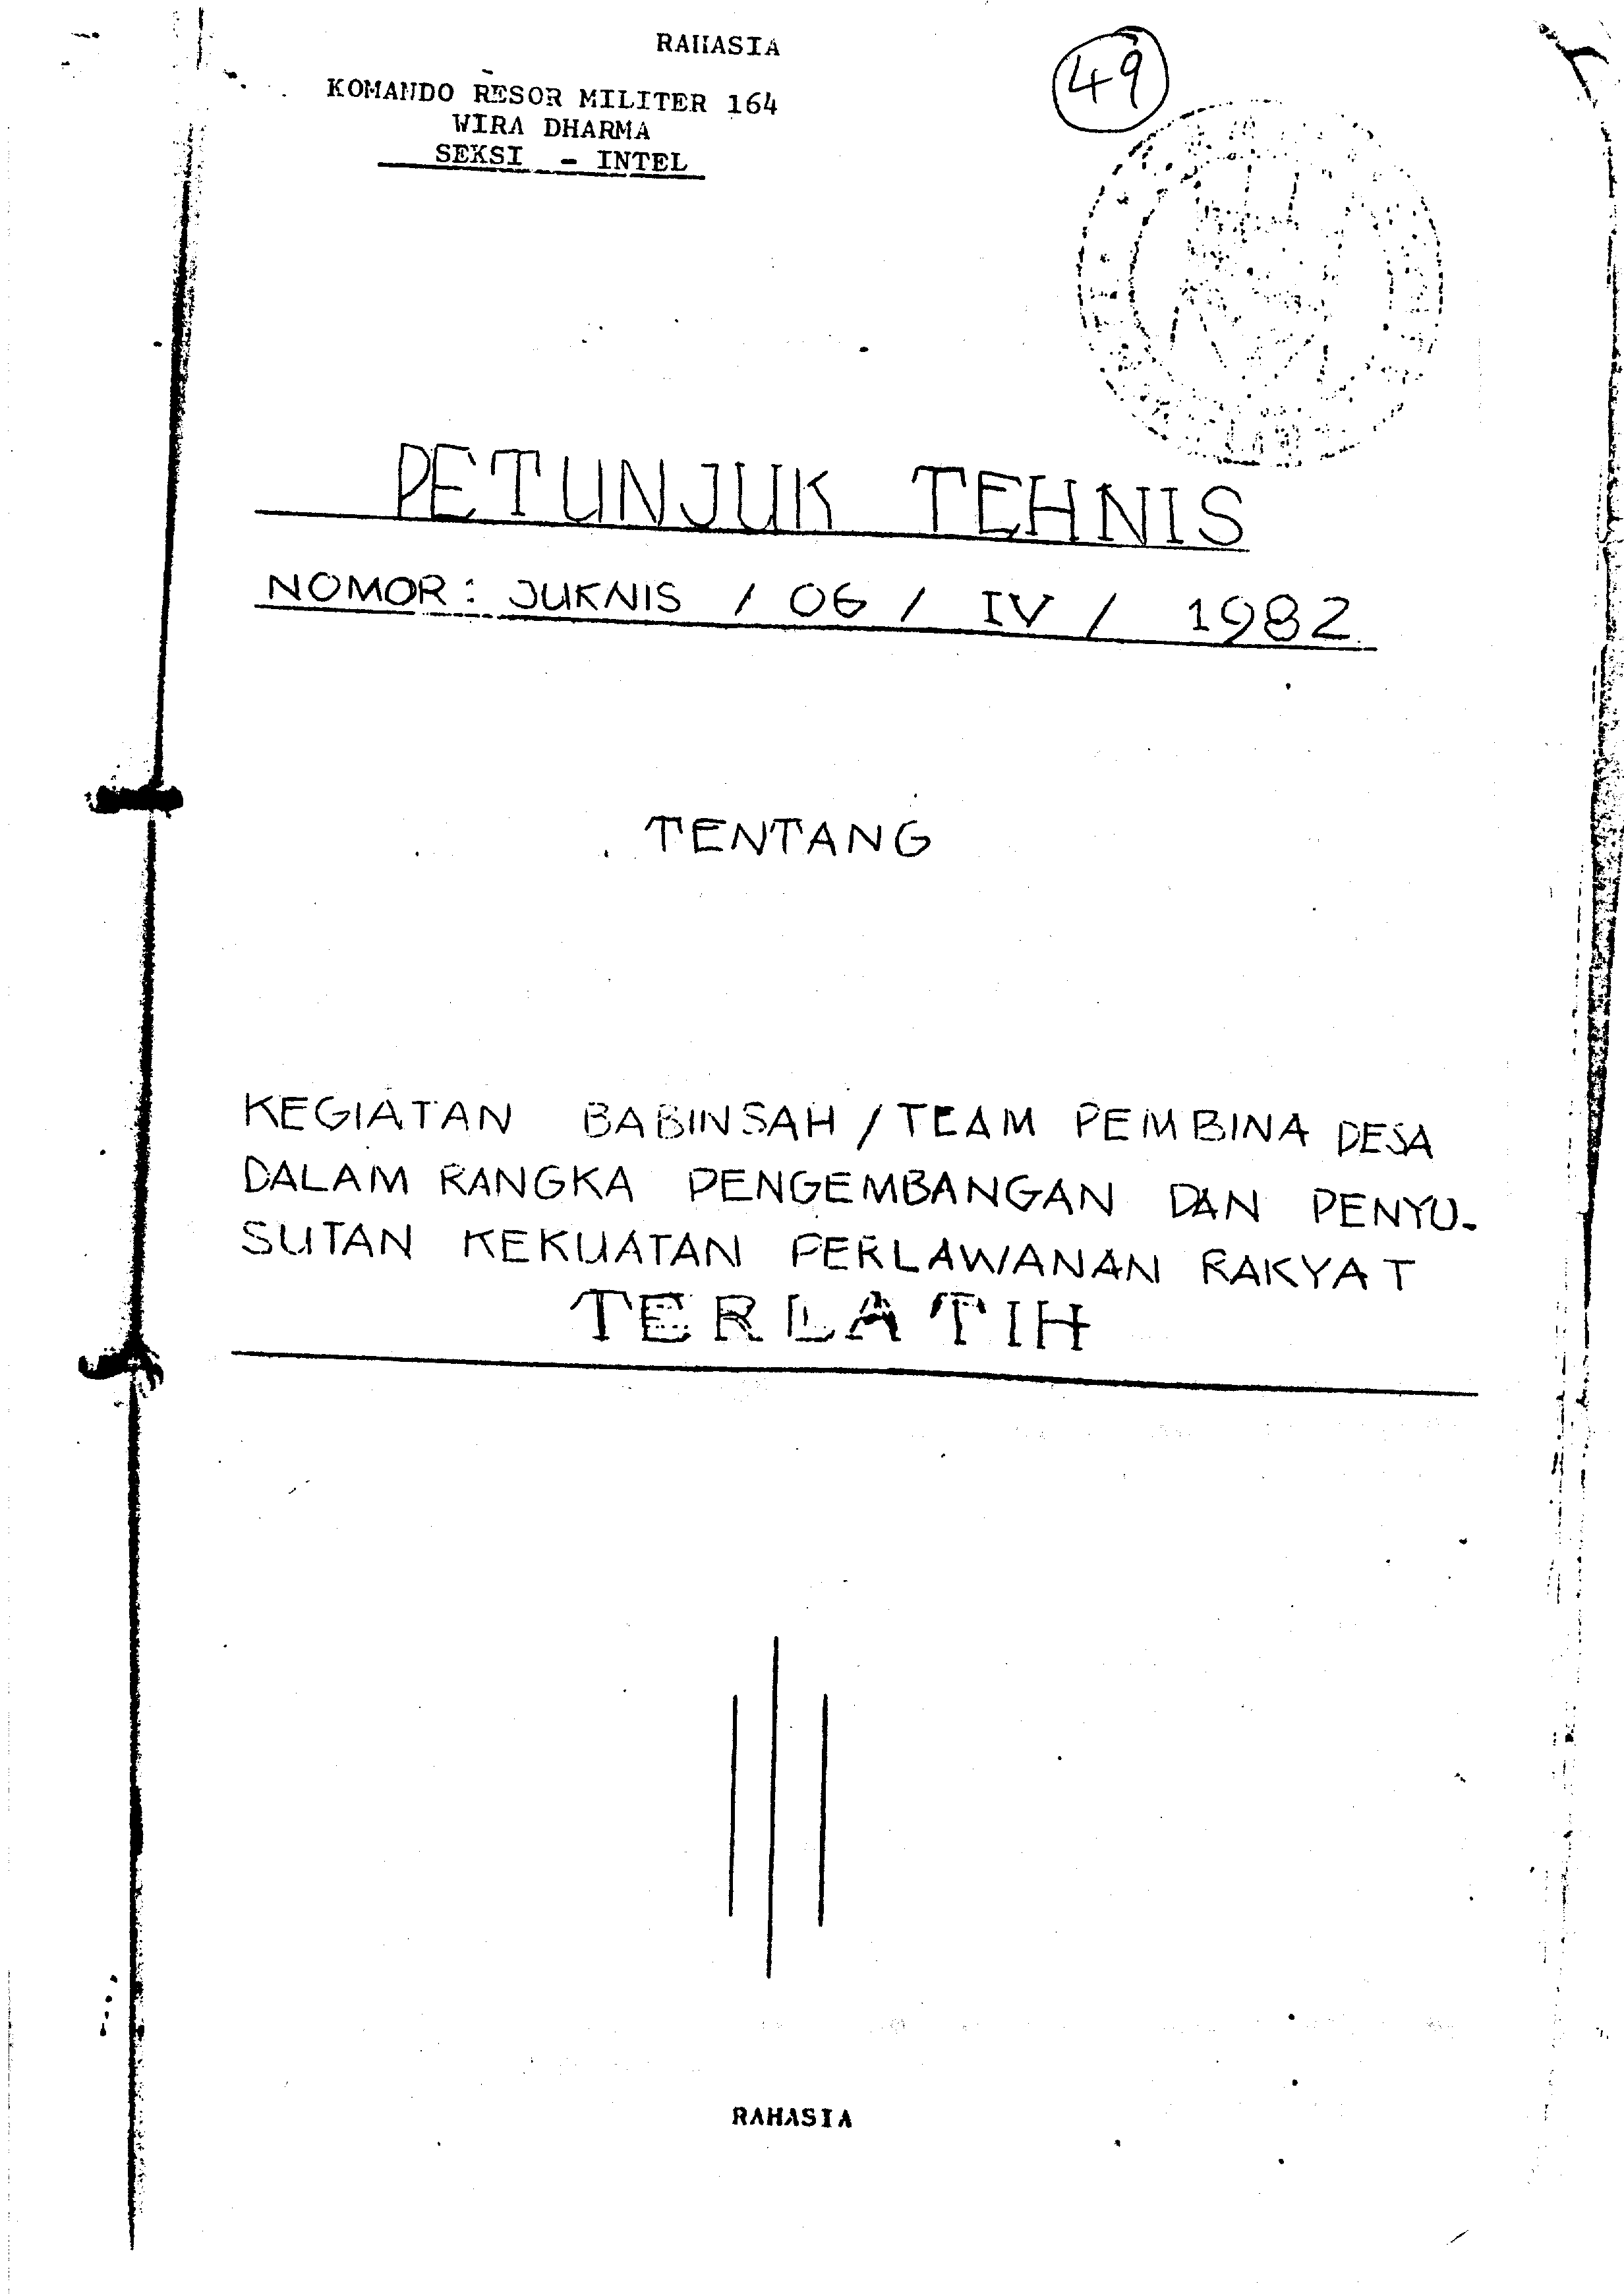 RAHASIA
49
KOMANDO RESOR MILITER 164
WIRA DHARMA
SEKSI - INTEL
PETUNJUK TEHNIS
NOMOR: JUKNIS / 06 / IV / 1982.
TENTANG
KEGIATAN BABINSAH / TEAM PEMBINA DESA
DALAM RANGKA PENGEMBANGAN DAN PENYU-
SUTAN KEKUATAN PERLAWANAN RAKYAT
TERLATIH
RAHASIA